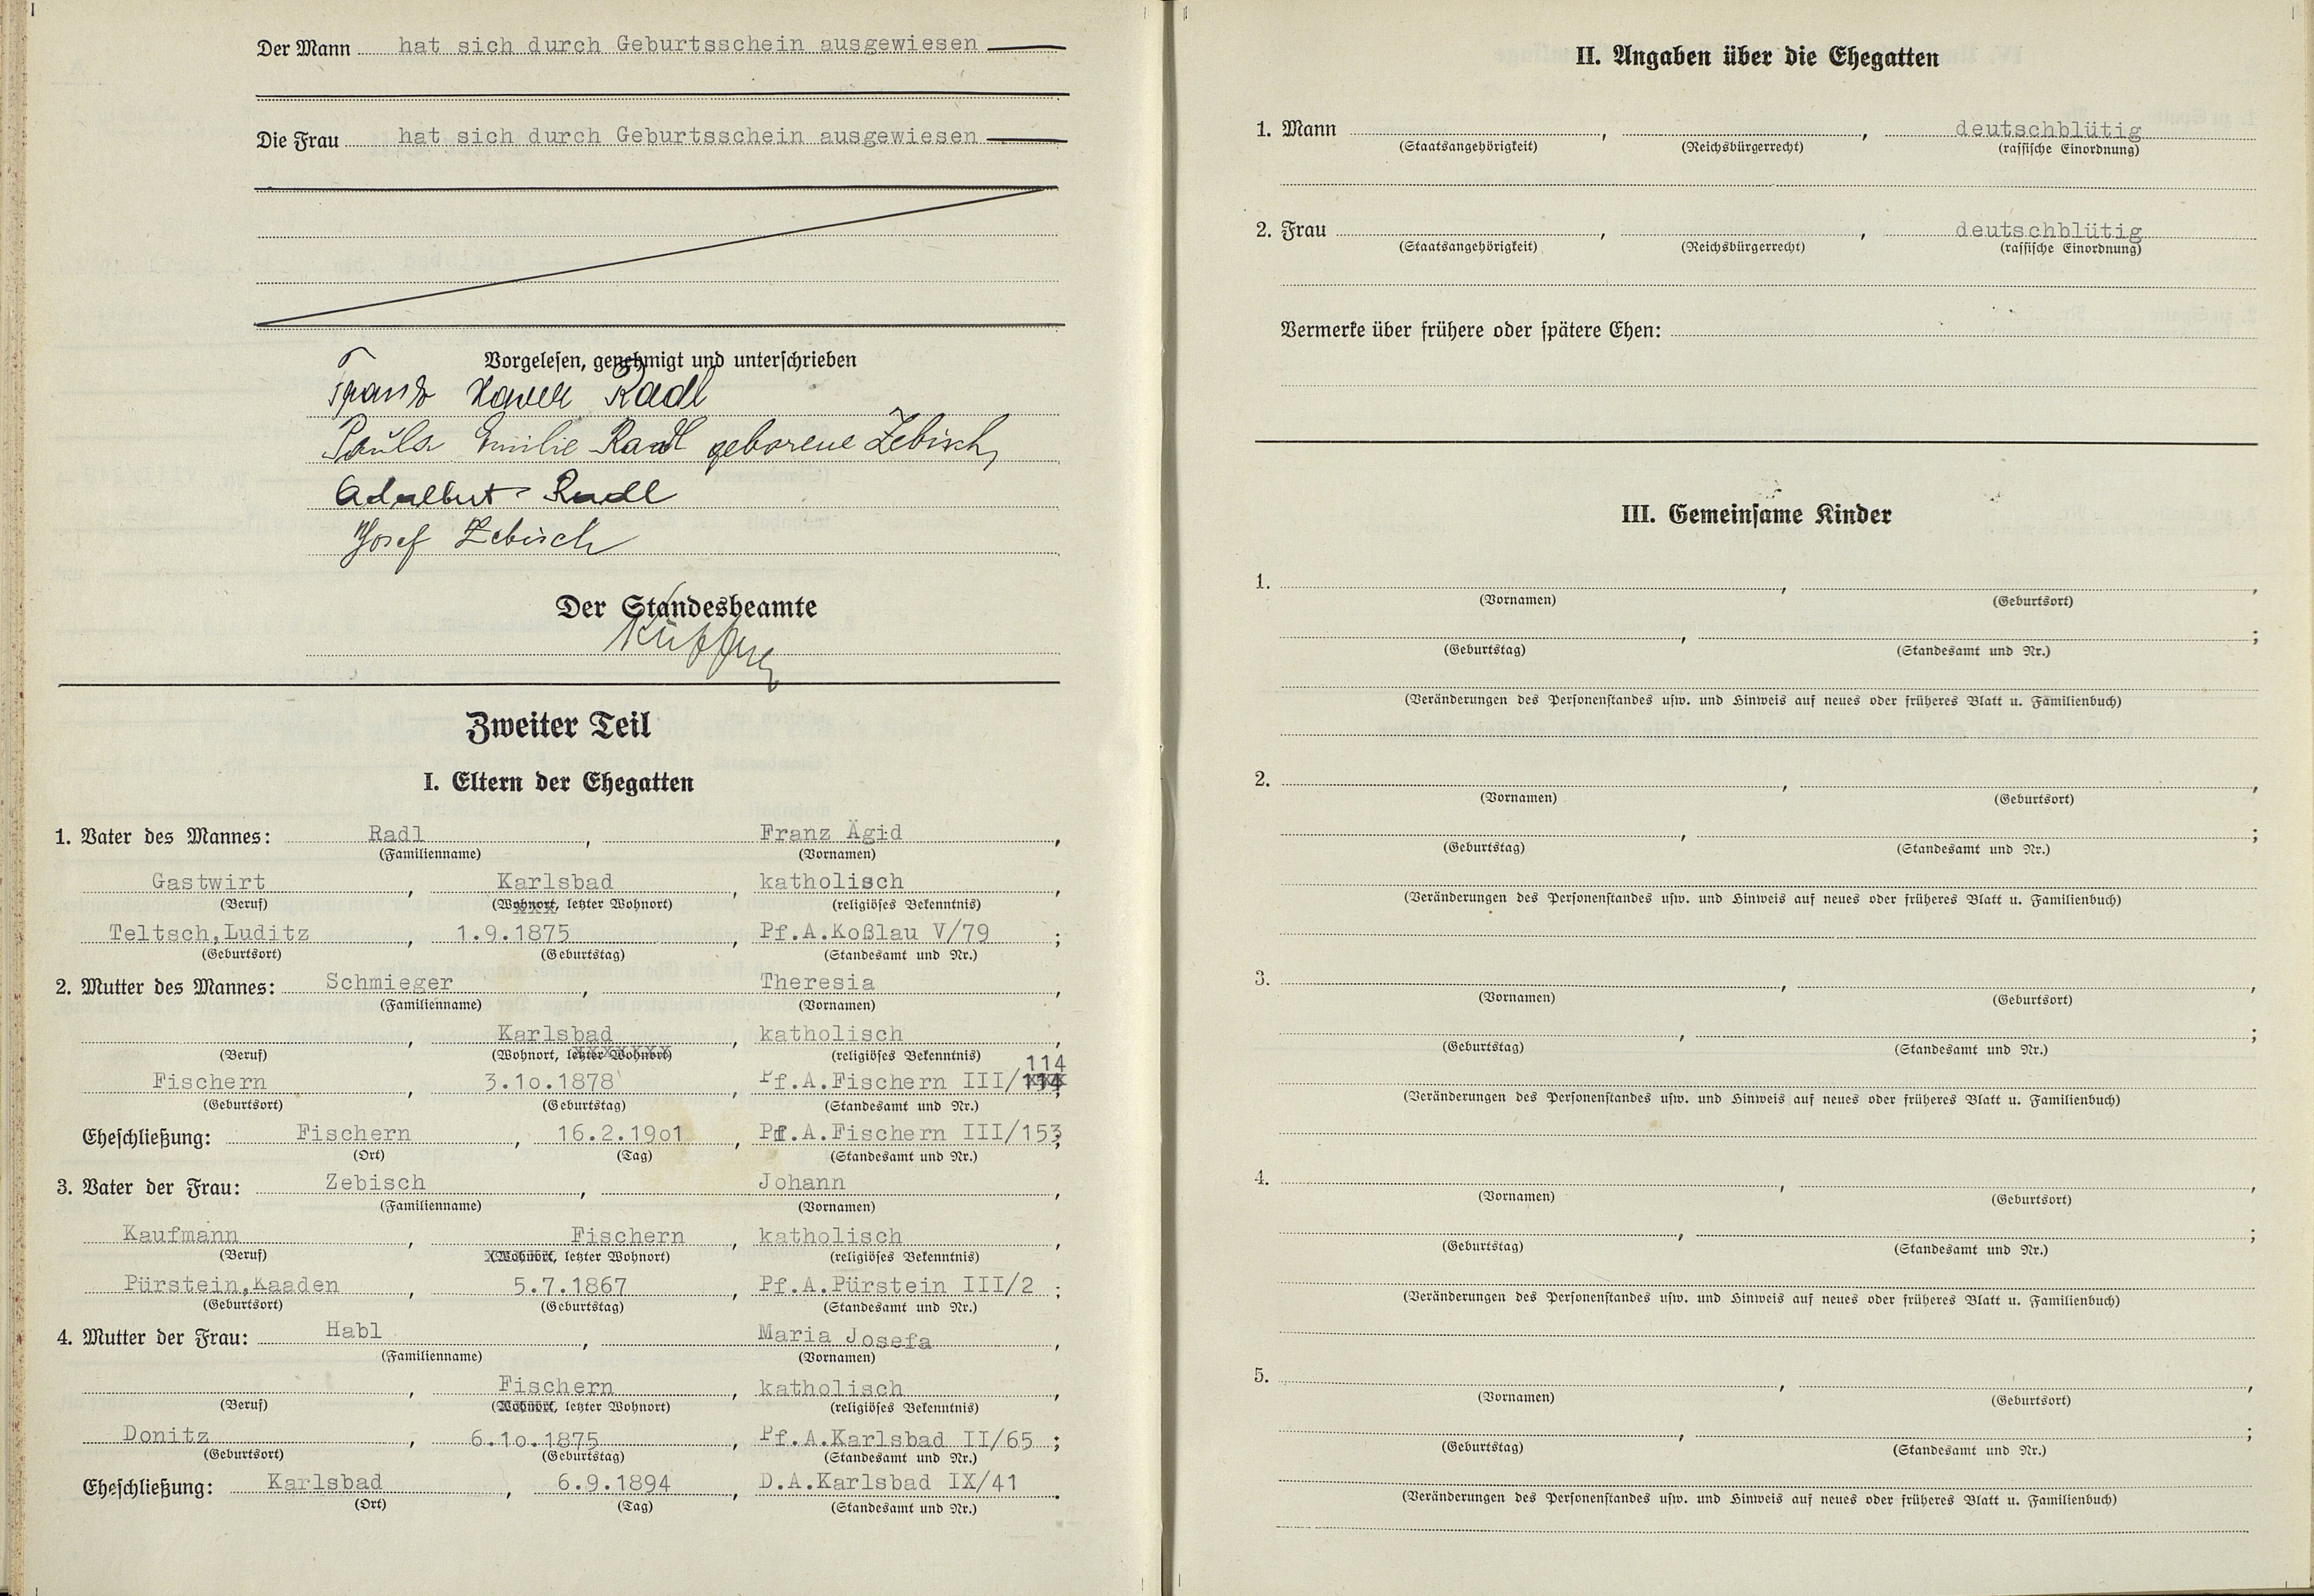 Der Mann hat sich durch Geburtsschein ausgewiesen
Die Frau hat sich durch Geburtsschein ausgewiesen
Vorgelesen, genehmigt und unterschrieben
Franz Xaver Radl
Paula Emilie Radl geborene Zebisch,
Adalbert Radl
Josef Zebisch
Der Standesbeamte
Zweiter Teil
I. Eltern der Ehegatten
1. Vater des Mannes: Radl, Franz Ägid,
(Familienname) (Vornamen)
Gastwirt, Karlsbad, katholisch,
(Beruf) (Wohnort, letzter Wohnort) (religiöses Bekenntnis)
Teltsch,Luditz, 1.9.1875, Pf.A.Koßlau V/79;
(Geburtsort) (Geburtstag) (Standesamt und Nr.)
2. Mutter des Mannes: Schmieger, Theresia,
(Familienname) (Vornamen)
, Karlsbad, katholisch,
(Beruf) (Wohnort, letzter Wohnort) (religiöses Bekenntnis)
114
Fischern, 3.10.1878, Pf.A.Fischern III/114;
(Geburtsort) (Geburtstag) (Standesamt und Nr.)
Eheschließung: Fischern, 16.2.1901, Pf.A.Fischern III/153;
(Ort) (Tag) (Standesamt und Nr.)
3. Vater der Frau: Zebisch, Johann,
(Familienname) (Vornamen)
Kaufmann, Fischern, katholisch,
(Beruf) (Wohnort, letzter Wohnort) (religiöses Bekenntnis)
Pürstein,Kaaden, 5.7.1867, Pf.A.Pürstein III/2;
(Geburtsort) (Geburtstag) (Standesamt und Nr.)
4. Mutter der Frau: Habl, Maria Josefa,
(Familienname) (Vornamen)
, Fischern, katholisch,
(Beruf) (Wohnort, letzter Wohnort) (religiöses Bekenntnis)
Donitz, 6.10.1875, Pf.A.Karlsbad II/65;
(Geburtsort) (Geburtstag) (Standesamt und Nr.)
Eheschließung: Karlsbad, 6.9.1894, D.A.Karlsbad IX/41.
(Ort) (Tag) (Standesamt und Nr.)
II. Angaben über die Ehegatten
1. Mann , , deutschblütig
(Staatsangehörigkeit) (Reichsbürgerrecht) (rassische Einordnung)
2. Frau , , deutschblütig
(Staatsangehörigkeit) (Reichsbürgerrecht) (rassische Einordnung)
Vermerke über frühere oder spätere Ehen:
III. Gemeinsame Kinder
1. , ,
(Vornamen) (Geburtsort)
, ;
(Geburtstag) (Standesamt und Nr.)
(Veränderungen des Personenstandes usw. und Hinweis auf neues oder früheres Blatt u. Familienbuch)
2. , ,
(Vornamen) (Geburtsort)
, ;
(Geburtstag) (Standesamt und Nr.)
(Veränderungen des Personenstandes usw. und Hinweis auf neues oder früheres Blatt u. Familienbuch)
3. , ,
(Vornamen) (Geburtsort)
, ;
(Geburtstag) (Standesamt und Nr.)
(Veränderungen des Personenstandes usw. und Hinweis auf neues oder früheres Blatt u. Familienbuch)
4. , ,
(Vornamen) (Geburtsort)
, ;
(Geburtstag) (Standesamt und Nr.)
(Veränderungen des Personenstandes usw. und Hinweis auf neues oder früheres Blatt u. Familienbuch)
5. , ,
(Vornamen) (Geburtsort)
, ;
(Geburtstag) (Standesamt und Nr.)
(Veränderungen des Personenstandes usw. und Hinweis auf neues oder früheres Blatt u. Familienbuch)